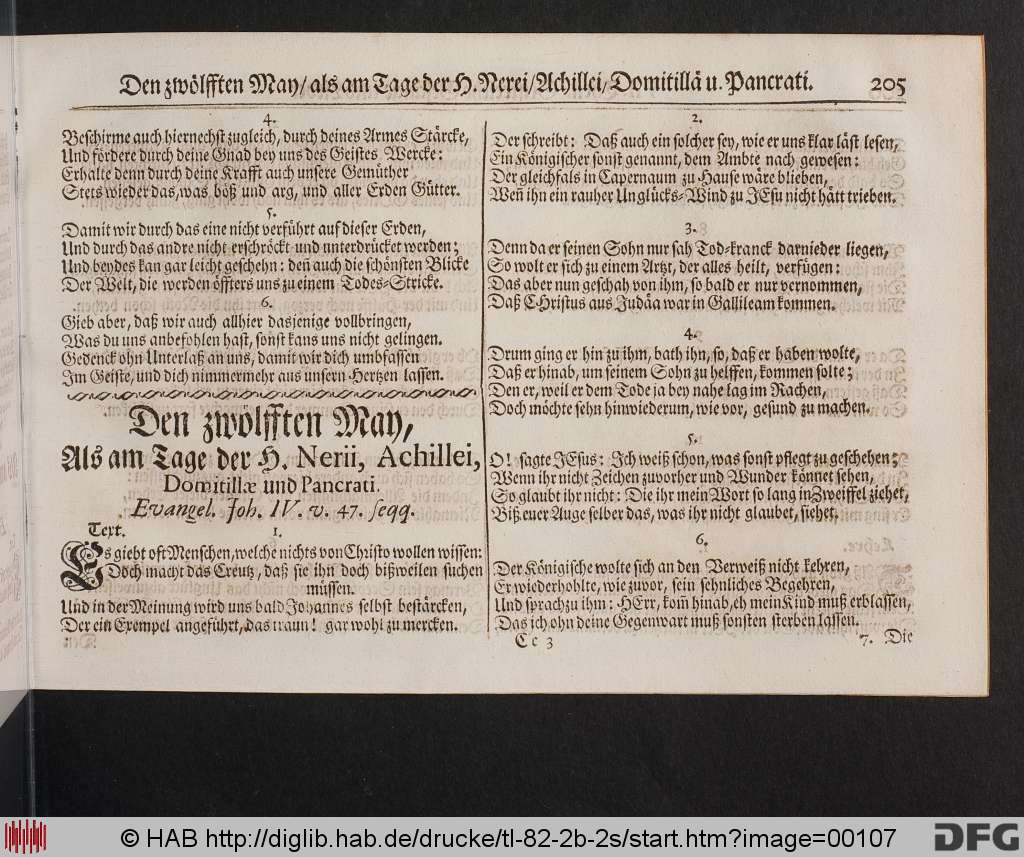 Den zwölfften May/ als am Tage der H. Nerei/ Achillei/ Domitillä u. Pancrati. 205
4.
Beschirme auch hiernechst zugleich, durch deines Armes Stärcke,
Und fördere durch deine Gnad bey uns des Geistes Wercke:
Erhalte denn durch deine Krafft auch unsere Gemüther
Stets wieder das, was böß und arg, und aller Erden Gütter.
5.
Damit wir durch das eine nicht verführt auf dieser Erden,
Und durch das andre nicht erschröckt und unterdrücket werden;
Und beydes kan gar leicht geschehn: deñ auch die schönsten Blicke
Der Welt, die werden öffters uns zu einem Todes-Stricke.
6.
Gieb aber, daß wir auch allhier dasjenige vollbringen,
Was du uns anbefohlen hast, sonst kans uns nicht gelingen.
Gedenck ohn Unterlaß an uns, damit wir dich umbfassen
Im Geiste, und dich nimmermehr aus unsern Hertzen lassen.
Den zwölfften May,
Als am Tage der H. Nerii, Achillei,
Domitillæ und Pancrati.
Evangel. Joh. IV. v. 47. seqq.
Text. 1.
Es giebt oft Menschen, welche nichts von Christo wollen wissen:
Doch macht das Creutz, daß sie ihn doch bißweilen suchen
müssen.
Und in der Meinung wird uns bald Johannes selbst bestärcken,
Der ein Exempel angeführt, das traun! gar wohl zu mercken.
2.
Der schreibt: Daß auch ein solcher sey, wie er uns klar läst lesen,
Ein Königischer sonst genannt, dem Ambte nach gewesen:
Der gleichfals in Capernaum zu Hause wäre blieben,
Weñ ihn ein rauher Unglücks-Wind zu JEsu nicht hätt trieben.
3.
Denn da er seinen Sohn nur sah Tod-kranck darnieder liegen,
So wolt er sich zu einem Artzt, der alles heilt, verfügen:
Das aber nun geschah von ihm, so bald er nur vernommen,
Daß CHristus aus Judäa war in Gallileam kommen.
4.
Drum ging er hin zu ihm, bath ihn, so, daß er haben wolte,
Daß er hinab, um seinem Sohn zu helffen, kommen solte;
Den er, weil er dem Tode ja bey nahe lag im Rachen,
Doch möchte sehn hinwiederum, wie vor, gesund zu machen.
5.
O! sagte JEsus: Ich weiß schon, was sonst pflegt zu geschehen;
Wenn ihr nicht Zeichen zuvorher und Wunder könnet sehen,
So glaubt ihr nicht: Die ihr mein Wort so lang in Zweiffel ziehet,
Biß euer Auge selber das, was ihr nicht glaubet, siehet.
6.
Der Königische wolte sich an den Verweiß nicht kehren,
Er wiederhohlte, wie zuvor, sein sehnliches Begehren,
Und sprach zu ihm: HErr, kom̃ hinab, eh mein Kind muß erblassen,
Das ich ohn deine Gegenwart muß sonsten sterben lassen.
Cc 3 7. Die
© HAB http://diglib.hab.de/drucke/tl-82-2b-2s/start.htm?image=00107
DFG